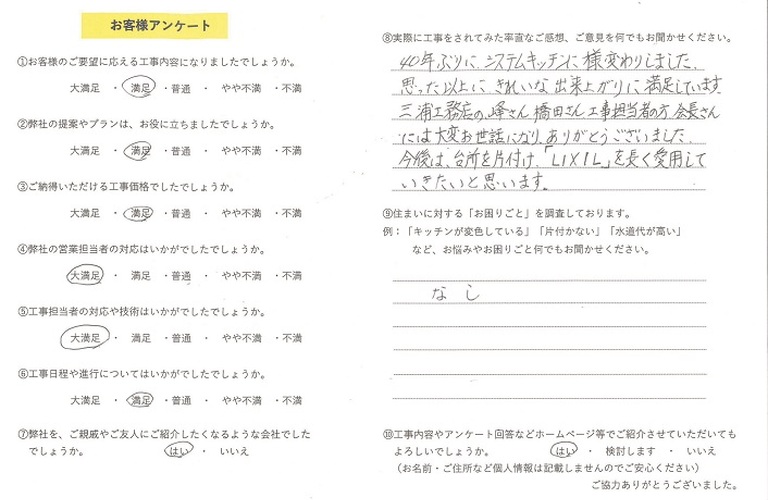 お客様アンケート
①お客様のご要望に応える工事内容になりましたでしょうか。
大満足 ・ 満足 ・普通 ・ やや不満 ・不満
②弊社の提案やプランは、お役に立ちましたでしょうか。
大満足 ・ 満足 ・普通 ・ やや不満 ・不満
③ご納得いただける工事価格でしたでしょうか。
大満足 ・ 満足 ・普通 ・ やや不満 ・不満
④弊社の営業担当者の対応はいかがでしたでしょうか。
大満足 ・ 満足 ・普通 ・ やや不満 ・不満
⑤工事担当者の対応や技術はいかがでしたでしょうか。
大満足 ・ 満足 ・普通 ・ やや不満 ・不満
⑥工事日程や進行についてはいかがでしたでしょうか。
大満足 ・ 満足 ・普通 ・ やや不満 ・不満
⑦弊社を、ご親戚やご友人にご紹介したくなるような会社でした
でしょうか。 ・ はい ・ いいえ
⑧実際に工事をされてみた率直なご感想、ご意見を何でもお聞かせください。
40年ぶりに、システムキッチンに様変わりしました。
思った以上に きれいな出来上がりに満足しています。
三浦工務店の、峰さん、橋田さん、工事担当者の方、会長さん
には大変お世話になり、ありがとうございました。
今後は、台所を片付け、「LIXIL」を長く愛用して
いきたいと思います。
⑨住まいに対する「お困りごと」を調査しております。
例：「キッチンが変色している」「片付かない」「水道代が高い」
など、お悩みやお困りごと何でもお聞かせください。
なし
⑩工事内容やアンケート回答などホームページ等でご紹介させていただいても
よろしいでしょうか。 はい ・ 検討します ・ いいえ
（お名前・ご住所など個人情報は記載しませんのでご安心ください）
ご協力ありがとうございました。